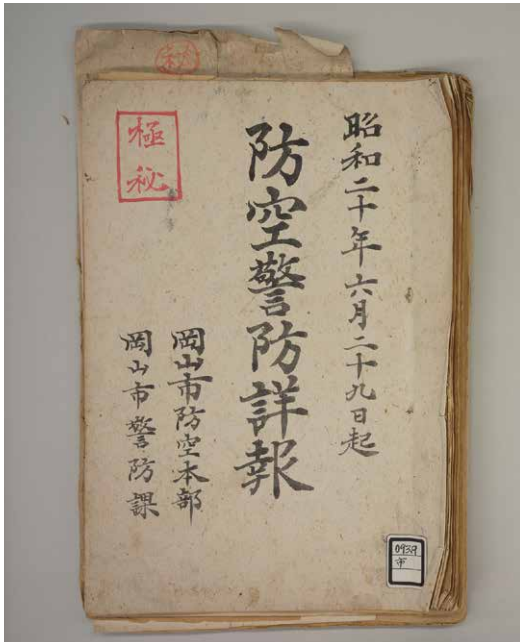 秘
昭和二十年六月二十九日起
防空警防詳報
極秘
岡山市防空本部
岡山市警防課
093.9
市